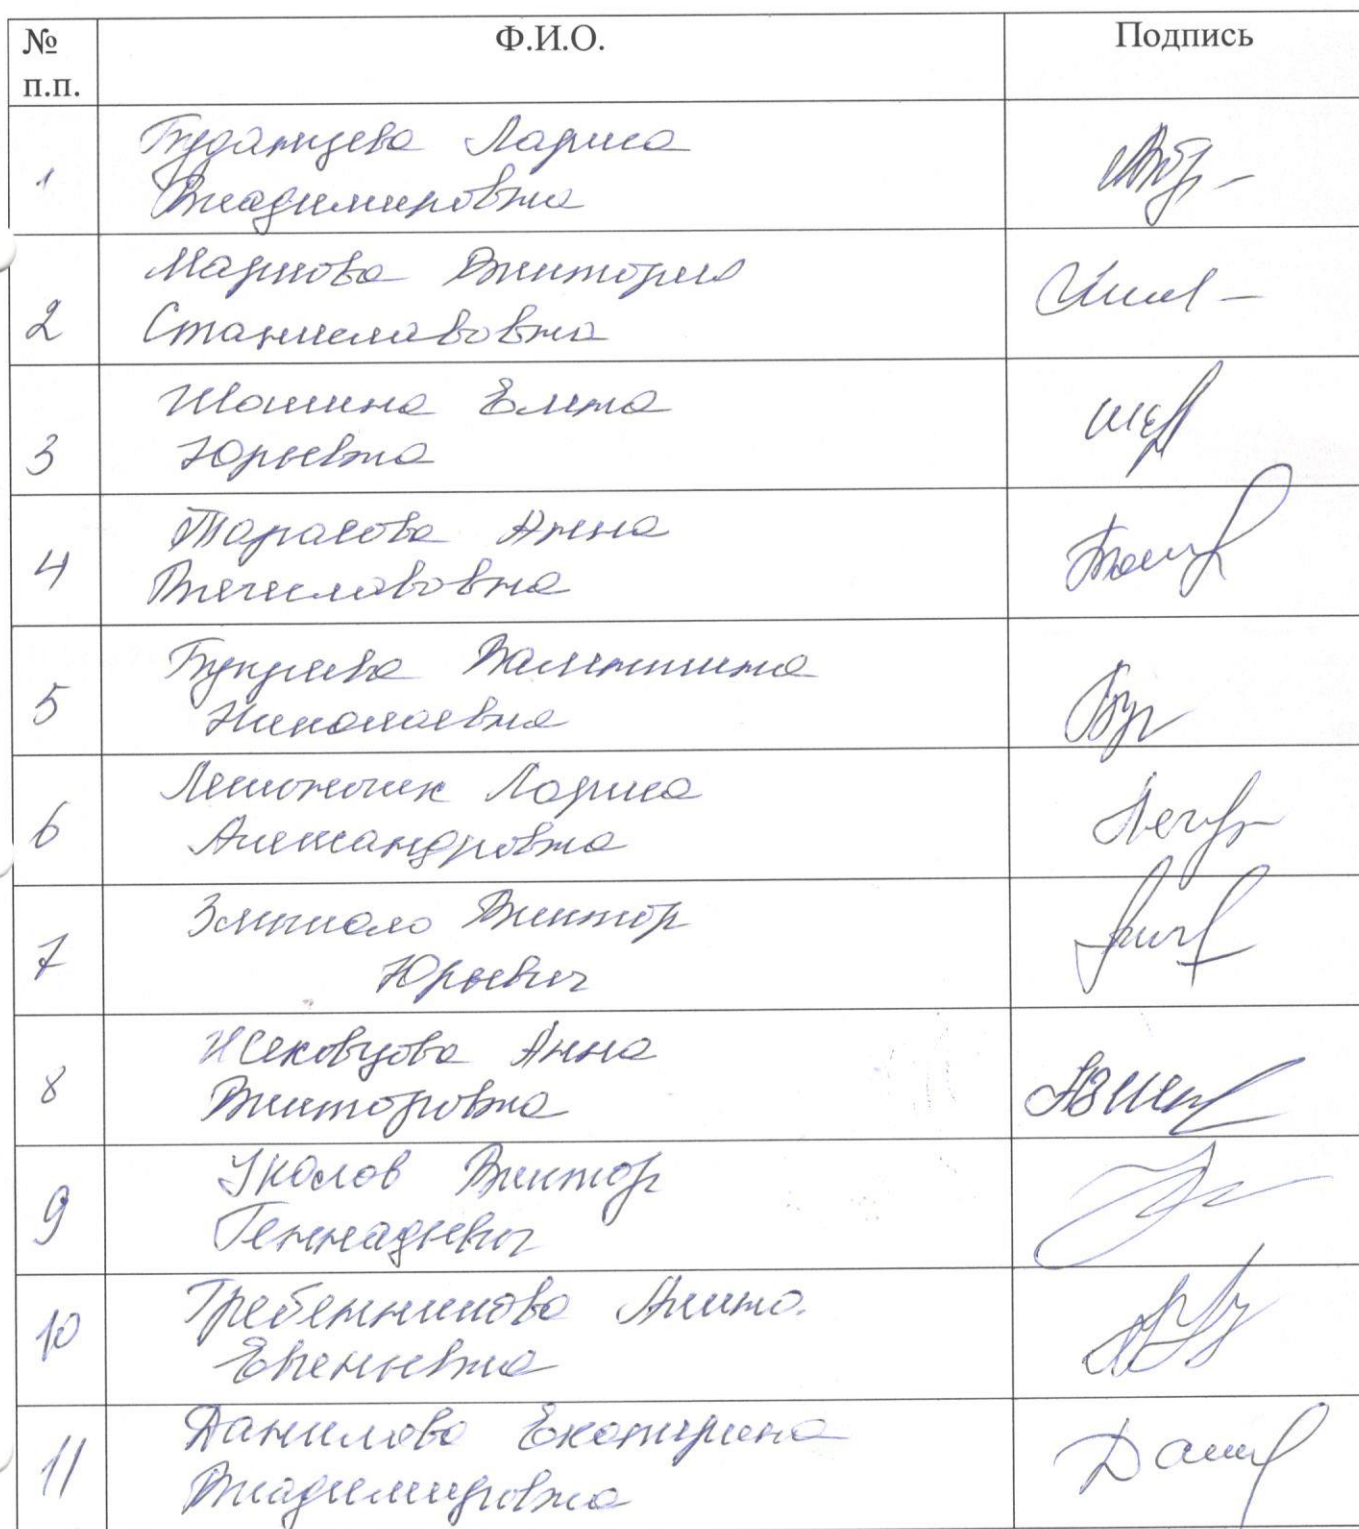 № Ф.И.О. Подпись
п.п.
1 Буданцева Лариса
Владимировна
Маркова Виктория
2 Станиславовна
Шошина Елена
3 Юрьевна
Тарасова Анна
4 Вячеславовна
Букреева Валентина
5 Николаевна
Лариса
6 Александровна
Виктор
7 Юрьевич
Жековцова Анна
8 Викторовна
Уколов Виктор
9 Геннадьевич
Гребенникова Алина
10 Евгеньевна
Данилова Екатерина
11 Владимировна